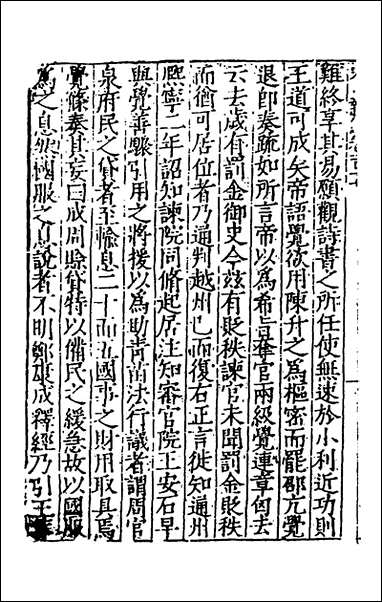 難終享其易願觀詩書之所任使無速於小利近功則
王道可成矣帝語覺欲用陳升之為樞密而罷邵亢覺
退即奏疏如所言帝以為希言奪官兩級覺連章匄去
云去歲有罰金御史今茲有貶秩諫官未聞罰金貶秩
而猶可居位者乃通判越州已而復右正言徙知通州
熙寧二年詔知諫院同脩起居注知審官院王安石早
與覺善驟引用之將援以為助青苗法行議者謂周官
泉府民之貸者至輸息二十而五國事之財用取具焉
覺條奏其妄曰成周賒貸特以備民之緩急故以國服
為之息然國服之息說者不明鄭康成釋經乃引王莽